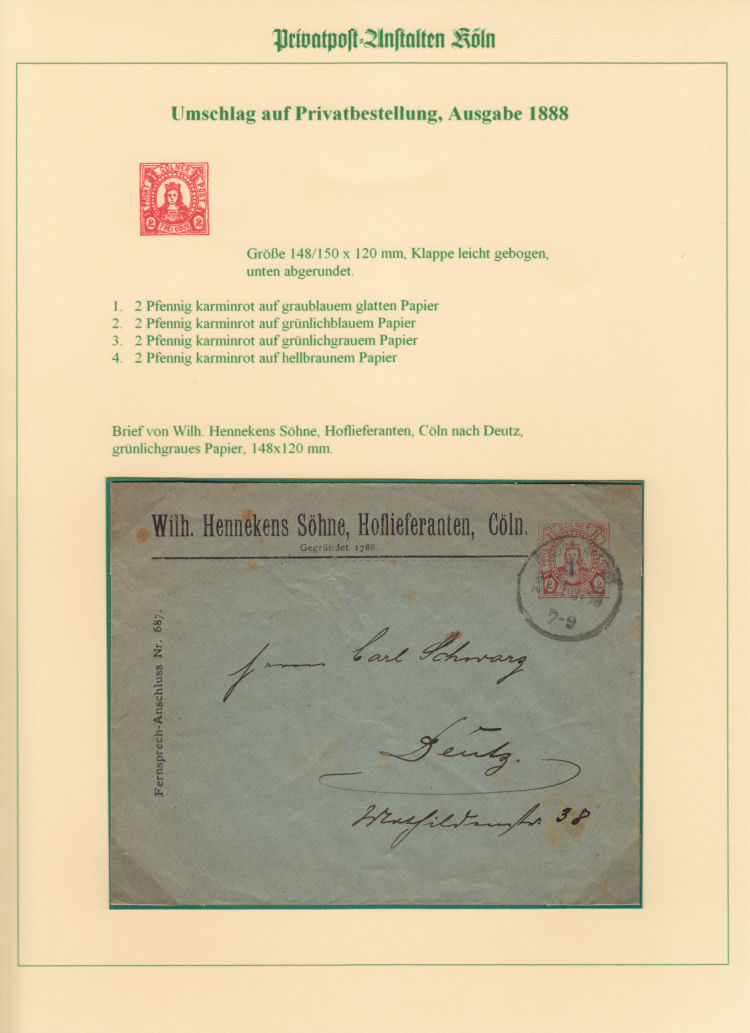 Privatpost-Anstalten Köln
Umschlag auf Privatbestellung, Ausgabe 1888
CÖLNER
PRIVAT POST
2 2
Größe 148/150 x 120 mm, Klappe leicht gebogen,
unten abgerundet.
1. 2 Pfennig karminrot auf graublauem glatten Papier
2. 2 Pfennig karminrot auf grünlichblauem Papier
3. 2 Pfennig karminrot auf grünlichgrauem Papier
4. 2 Pfennig karminrot auf hellbraunem Papier
Brief von Wilh. Hennekens Söhne, Hoflieferanten, Cöln nach Deutz,
grünlichgraues Papier, 148x120 mm.
Wilh. Hennekens Söhne, Hoflieferanten, Cöln.
Gegründet 1788.
CÖLNER
2 2
7-9
Fernsprech-Anschluss Nr. 687.
Herrn Carl Schwarz
Deutz.
Mathildenstr. 38